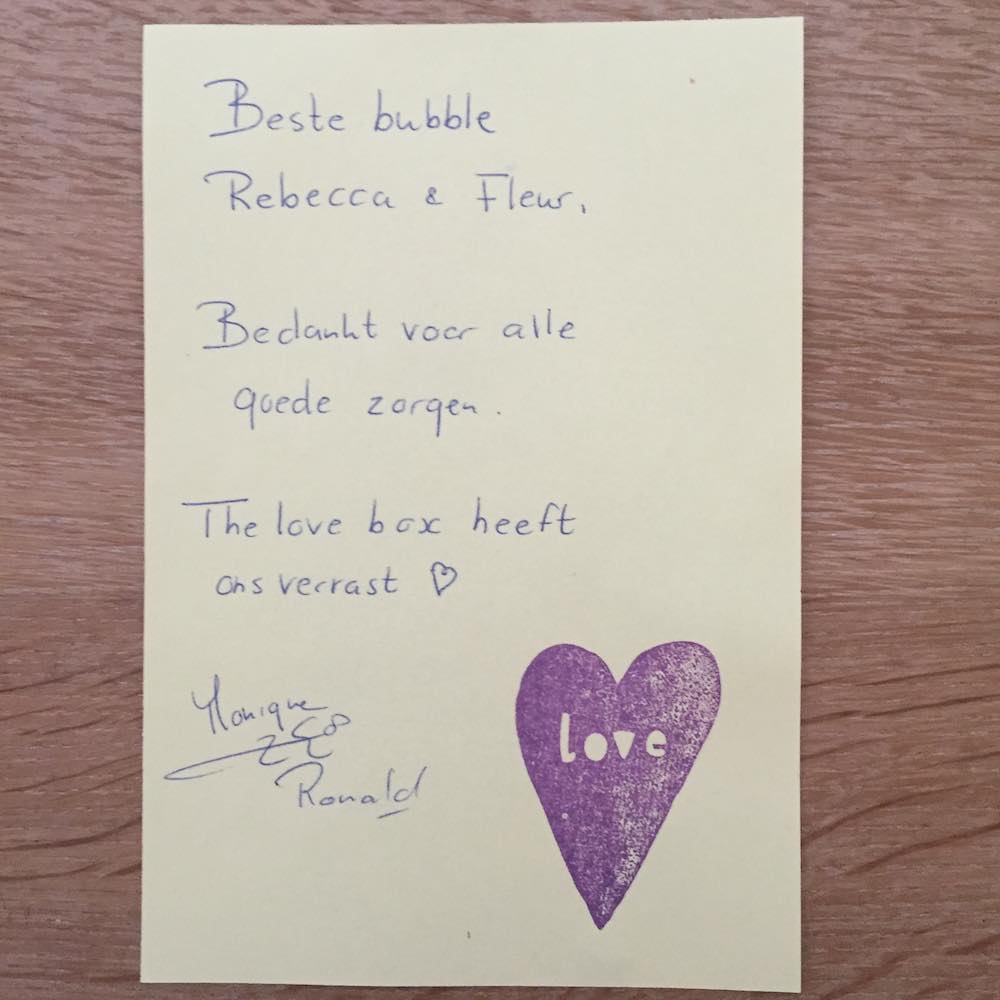 Beste bubble
Rebecca & Fleur,
Bedankt voor alle
goede zorgen.
The love box heeft
ons verrast ♡
Monique
Ronald
love